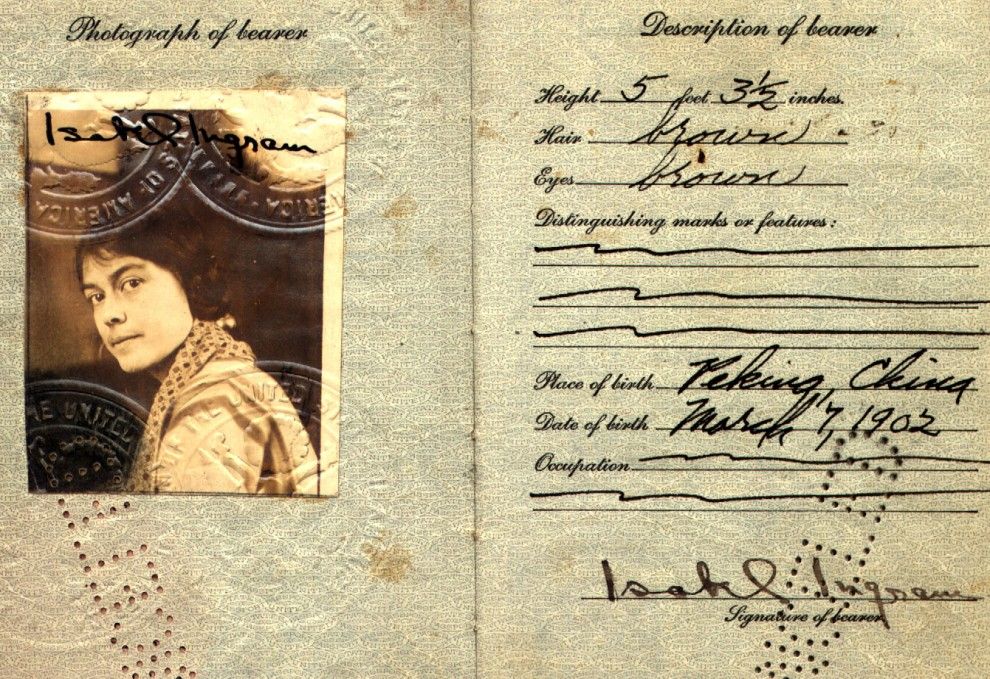 Photograph of bearer
Isabel Ingram
OF AMERICA
AMERICA
THE UNITED
THE UNITED
Description of bearer
Height 5 feet 3½ inches.
Hair brown
Eyes brown
Distinguishing marks or features:
Place of birth Peking, China
Date of birth March 7, 1902
Occupation
Isabel Ingram
Signature of bearer